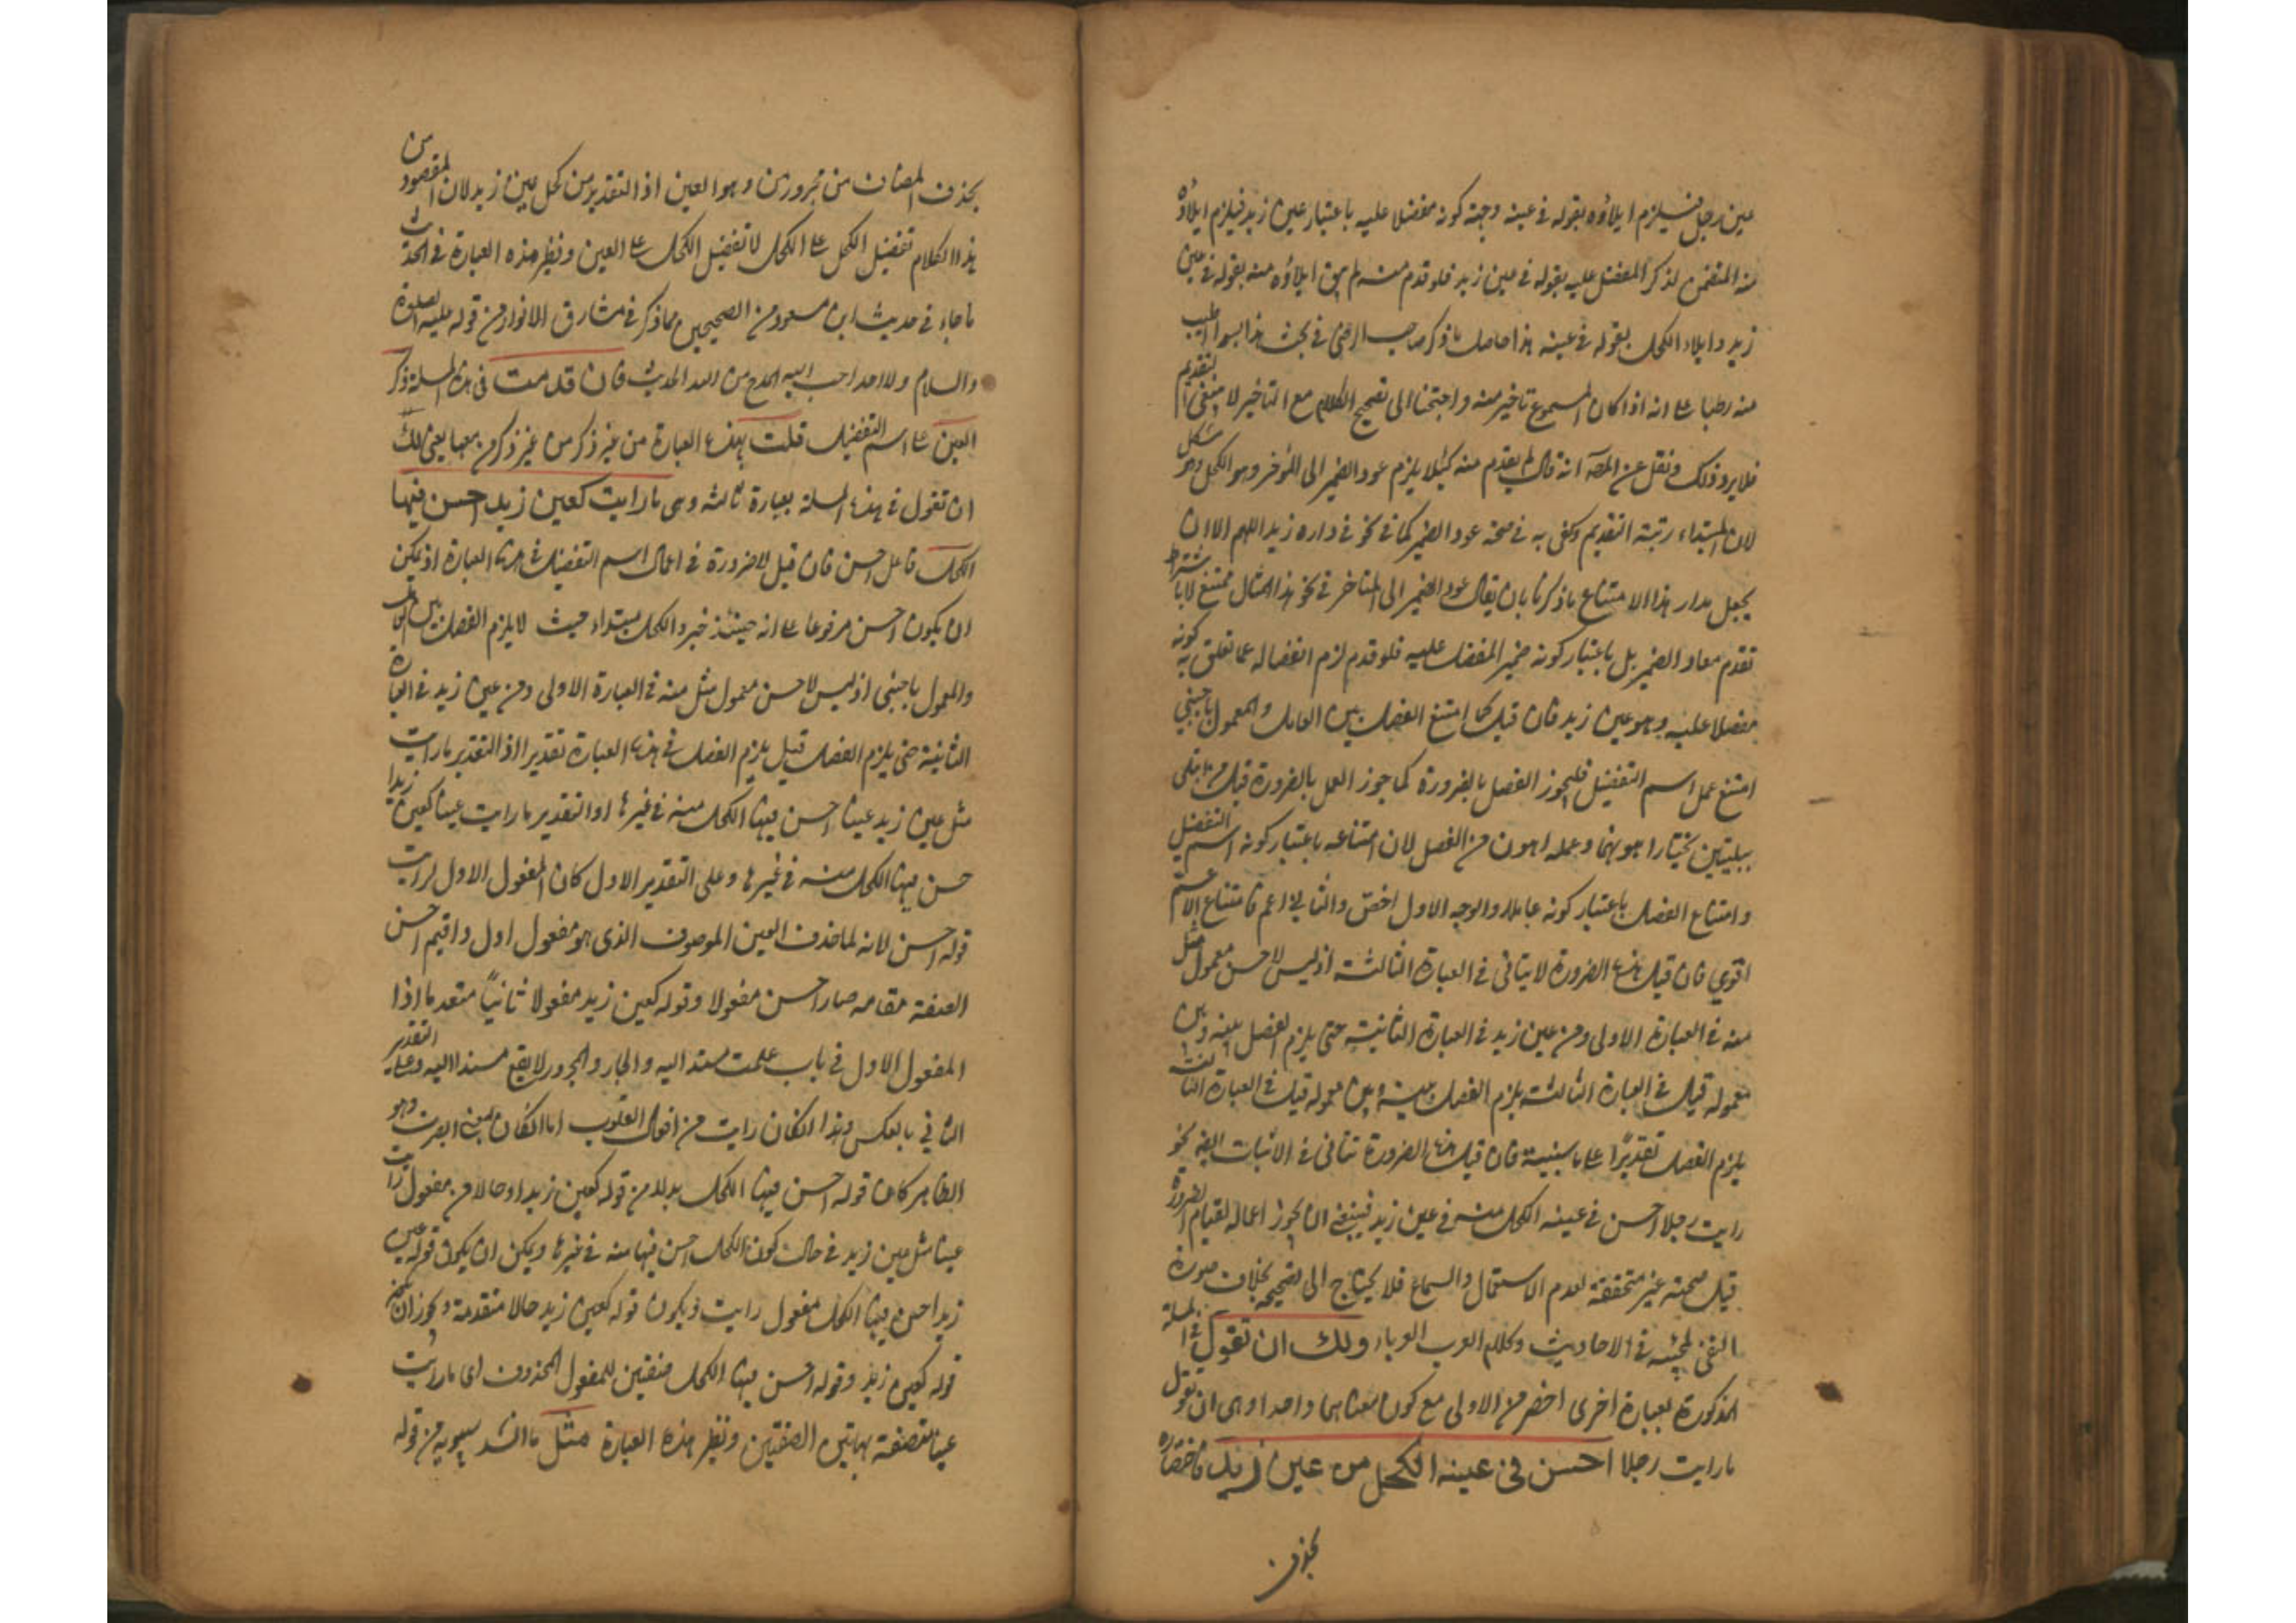 عين رجل فيلزم ايلاؤه بقوله فى عينه وجهة كونه مفضلا عليه باعتبار عين زيد فيلزم ايلاؤه
منه المتضمن لذكر المفضل عليه بقوله فى عين زيد فلو قدم منه لم يبق ايلاؤه منه بقوله فى عين
زيد وايلاء الكحل بقوله فى عينه هذا حاصل ما ذكر صاحب الرضى فى بحث هذا بسوا اطيب
منه رطبا على انه اذا كان المسموع تاخير منه واحتجنا الى تصحيح الكلام مع التاخير لا التقديم
فلا يرد ذلك ونقل عن المصـ انه قال لم يقدم منه كيلا يلزم عود الضمير الى المؤخر وهو الكحل وهو مشكل
لان المبتداء رتبته التقديم وكفى به فى صحة عود الضمير كما فى نحو فى داره زيد اللهم الا ان
يجعل مدار هذا الامتناع ما ذكرنا بان يقال عود الضمير الى المتاخر فى نحو هذا المثال ممتنع لا باشتراط
تقدم معاد الضمير بل باعتبار كونه ضمير المفضل عليه فلو قدم لزم انفصاله عما تعلق به كونه
مفضلا عليه وهو عين زيد فان قيل كما امتنع الفصل بين العامل والمعمول باجنبى
امتنع عمل اسم التفضيل فليجوز الفصل بالضرورة كما جوز العمل بالضرورة قيل من ابتلى
ببليتين يختار اهونهما وعمله اهون من الفصل لان امتناعه باعتبار كونه اسم التفضيل
وامتناع الفصل باعتبار كونه عاملا والوجه الاول اخص والثانى اعم فامتناع الاعم
اقوى فان قيل هذه الضرورة لا يتاتى فى العبارة الثالثة اذ ليس لاحسن معمول مثل
منه فى العبارة الاولى ومن عين زيد فى العبارة الثانية حتى يلزم الفصل بينه وبين
معموله قيل فى العبارة الثالثة يلزم الفصل بينه وبين معموله قيل فى العبارة الثالثة
يلزم الفصل تقديرًا على ما سنبينه فان قيل هذه الضرورة تتاتى فى الاثبات ايضا نحو
رايت رجلا احسن فى عينه الكحل منه فى عين زيد فينبغى ان يجوز اعماله لقيام الضرورة
قيل صحته غير متحققة لعدم الاستعمال والسماع فلا يحتاج الى تصحيحه بخلاف صورة
النفى لمجيئه فى الاحاديث وكلام العرب العرباء ولك ان تقول فى المسلة
المذكورة بعبارة اخرى اخصر من الاولى مع كون معناهما واحدا وهى ان تقول
ما رايت رجلا احسن فى عينه الكحل من عين زيد فاختصاره
بحذف
بحذف المضاف من مجرور من وهو العين اذ التقدير من كحل عين زيد لان المقصود من
هذا الكلام تفضيل الكحل على الكحل لا تفضيل الكحل على العين ونظير هذه العبارة فى الحديث
ما جاء فى حديث ابن مسعود من الصحيحين مما ذكر فى مشارق الانوار من قوله عليه الصلوة
والسلام ولا احد احب اليه المدح من الله الحديث فان قدمت فى هذه المسلة ذكر
العين على اسم التفضيل قلت بهذه العبارة من غير ذكر من غير ذكر من معها يعنى لك
ان تقول فى هذه المسلة بعبارة ثالثة وهى ما رايت كعين زيد احسن فيها
الكحل فاعل احسن فان قيل لا ضرورة فى اعمال اسم التفضيل فى هذه العبارة اذ يمكن
ان يكون احسن مرفوعا على انه حينئذ خبر والكحل مبتداء حيث لا يلزم الفصل بين العامل
والمعمول باجنبى اذ ليس لاحسن معمول مثل منه فى العبارة الاولى ومن عين زيد فى العبارة
الثانية حتى يلزم الفصل قيل يلزم الفصل فى هذه العبارة تقديرا اذ التقدير ما رايت
مثل عين زيد عينا احسن فيها الكحل منه فى غيرها او التقدير ما رايت عينا كعين زيد ا
حسن فيها الكحل منه فى غيرها وعلى التقدير الاول كان المفعول الاول لرايت
قوله احسن لانه لما حذف العين الموصوف الذى هو مفعول اول واقيم احسن
الصفة مقامه صار احسن مفعولا وقوله كعين زيد مفعولا ثانياً متقدما اذا
المفعول الاول فى باب علمت مسند اليه والجار والمجرور لا يقع مسندا اليه وعلى التقدير
الثانى بالعكس وهذا ان كان رايت من افعال القلوب اما ان كان بمعنى ابصرت وهو
الظاهر كان قوله احسن فيها الكحل بدلا من قوله كعين زيد او حالا من مفعول رايت
عينا مثل عين زيد فى حال كون الكحل احسن فيها منه فى غيرها ويمكن ان يكون قوله عين
زيد احسن فيها الكحل مفعول رايت ويكون قوله كعين زيد حالا متقدمة ويجوز ان يكون
قوله كعين زيد وقوله احسن فيها الكحل صفتين للمفعول المحذوف اى ما رايت
عينا متصفة بهاتين الصفتين ونظير هذه العبارة مثل ما انشد سيبويه من قوله